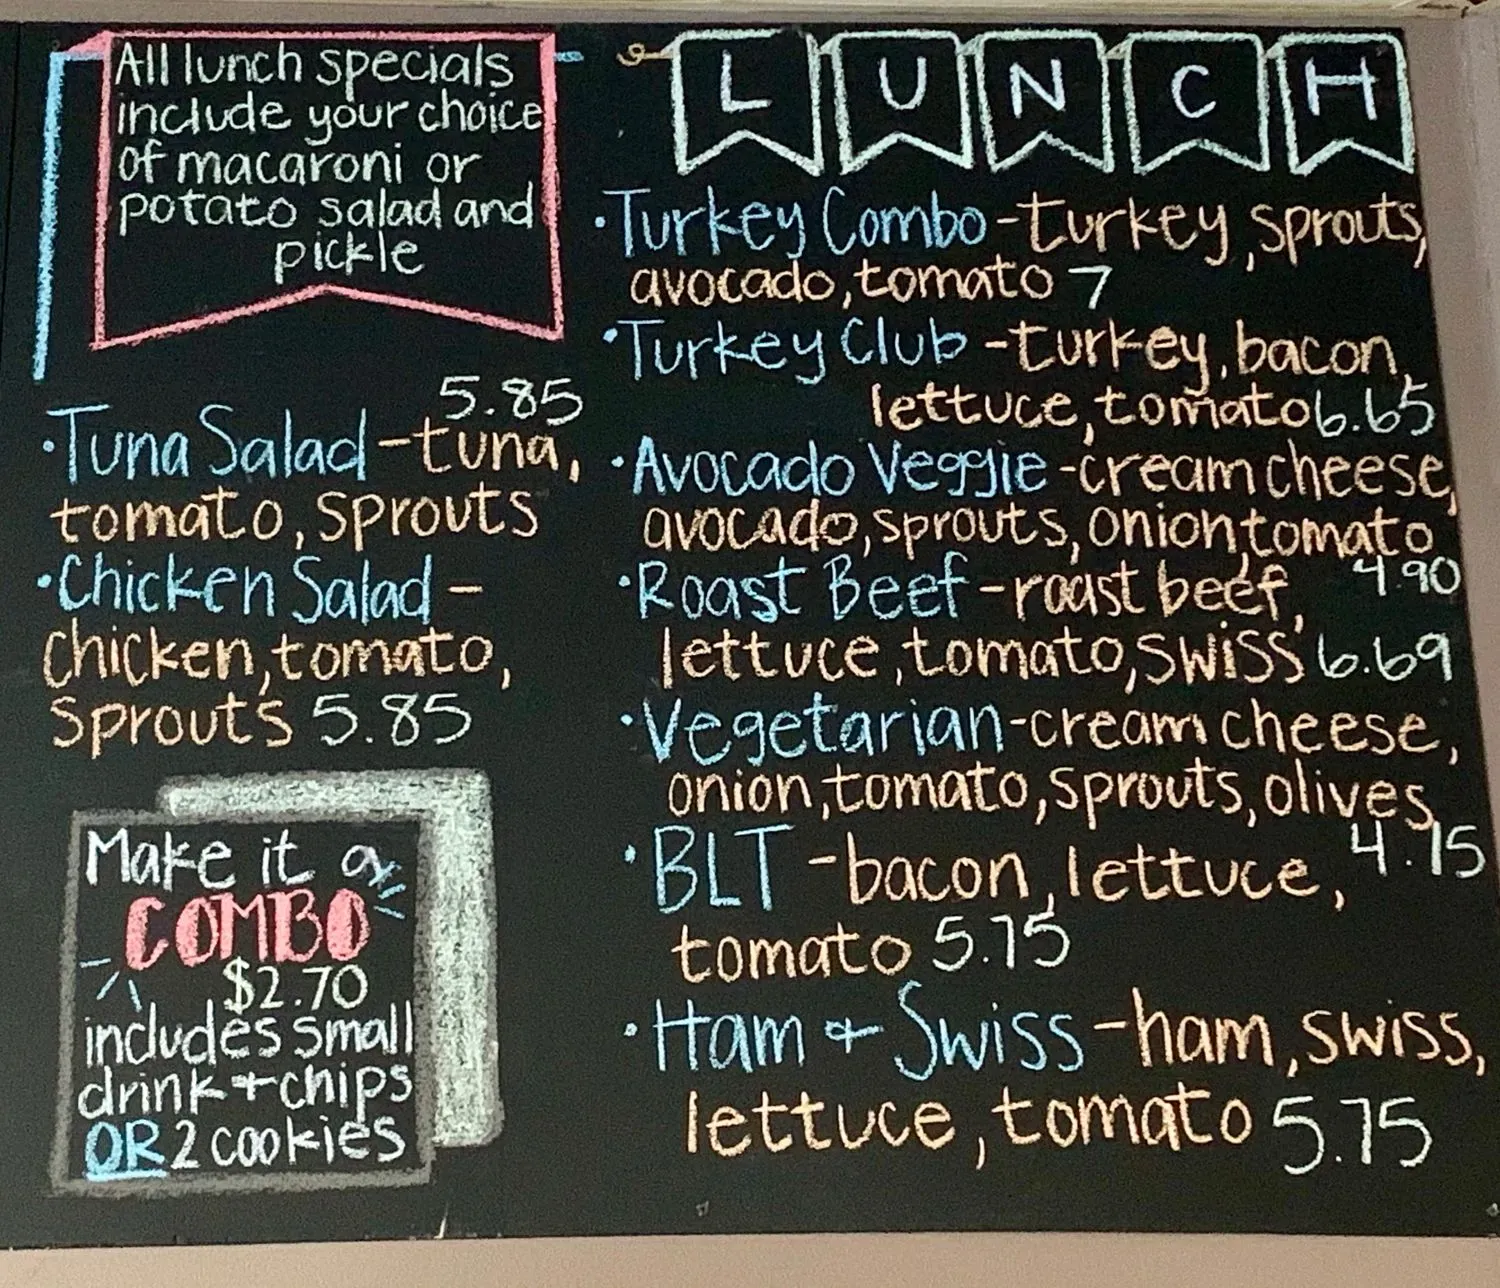 All lunch specials
include your choice
of macaroni or
potato salad and
pickle
5.85
·Tuna Salad - tuna,
tomato, sprouts
·Chicken Salad -
chicken, tomato,
sprouts 5.85
Make it a
COMBO
$2.70
includes small
drink + chips
OR 2 cookies
LUNCH
·Turkey Combo - turkey, sprouts,
avocado, tomato 7
·Turkey Club - turkey, bacon,
lettuce, tomato 6.65
·Avocado Veggie - cream cheese,
avocado, sprouts, onion, tomato
4.90
·Roast Beef - roast beef,
lettuce, tomato, swiss 6.69
·Vegetarian - cream cheese,
onion, tomato, sprouts, olives
4.75
·BLT - bacon, lettuce,
tomato 5.75
·Ham + Swiss - ham, swiss,
lettuce, tomato 5.75